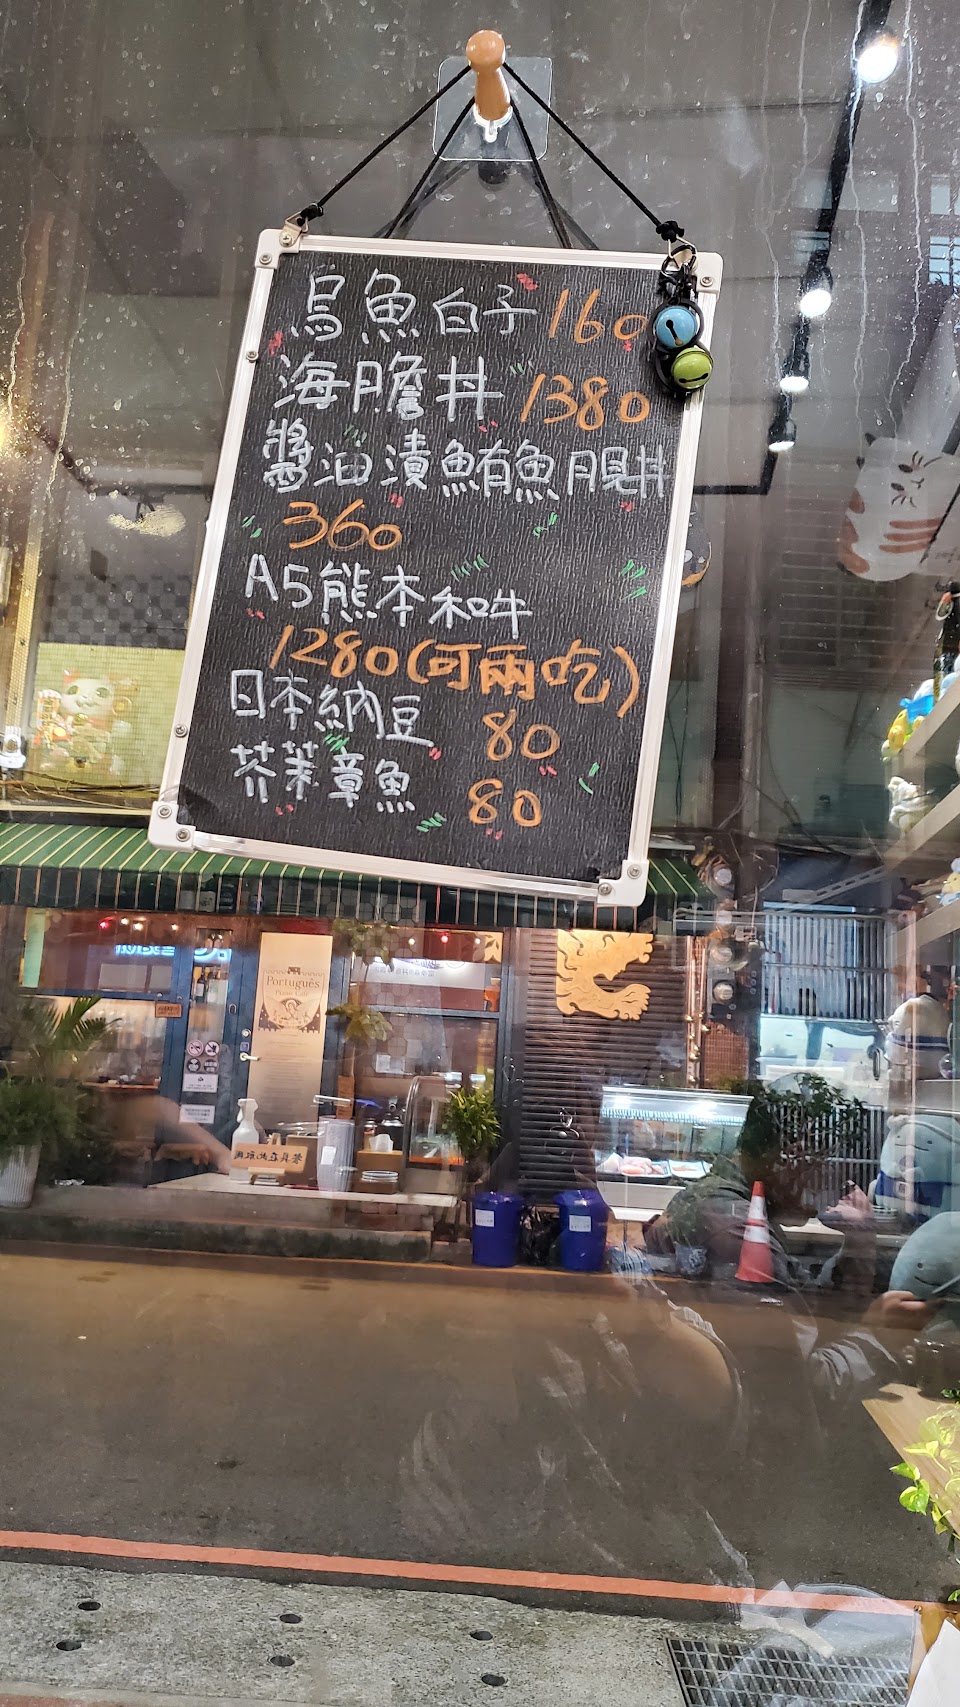 烏魚白子 160
海膽丼 1380
醬油漬鮪魚腹丼
360
A5熊本和牛
1280(可兩吃)
日本納豆 80
芥茉章魚 80
Português